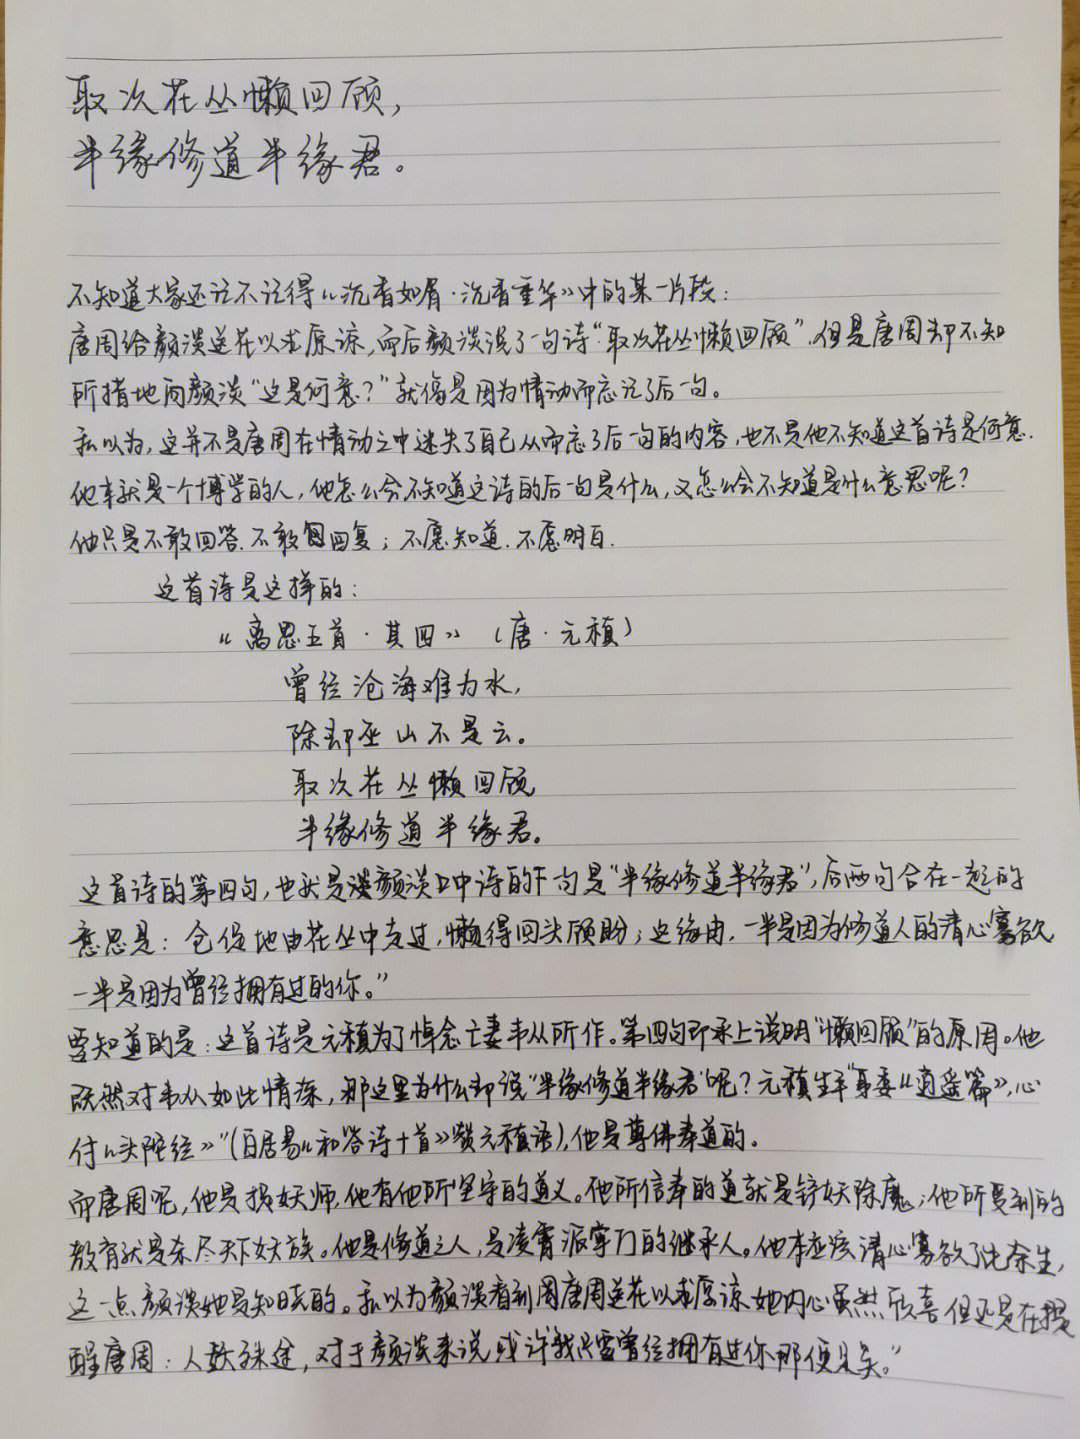 取次花丛懒回顾，
半缘修道半缘君。
不知道大家还记不记得《沉香如屑·沉香重华》中的某一片段：
唐周给颜淡送花以求原谅，而后颜淡说了一句诗“取次花丛懒回顾”，但是唐周却不知
所措地问颜淡“这是何意？”就像是因为情动而忘记了后一句。
私以为，这并不是唐周在情动之中迷失了自己从而忘了后一句的内容，也不是他不知道这首诗是何意.
他本就是一个博学的人，他怎么会不知道这诗的后一句是什么，又怎么会不知道是什么意思呢？
他只是不敢回答、不敢回复；不愿知道、不愿明白.
这首诗是这样的：
《离思五首·其四》（唐·元稹）
曾经沧海难为水，
除却巫山不是云。
取次花丛懒回顾
半缘修道半缘君。
这首诗的第四句，也就是颜淡口中诗的下句是“半缘修道半缘君”，后两句合在一起的
意思是：仓促地由花丛中走过，懒得回头顾盼；这缘由，一半是因为修道人的清心寡欲
一半是因为曾经拥有过的你。”
要知道的是：这首诗是元稹为了悼念亡妻韦丛所作。第四句即承上说明“懒回顾”的原因。他
既然对韦丛如此情深，那这里为什么却说“半缘修道半缘君”呢？元稹生平“身委《逍遥篇》，心
付《头陀经》”（白居易《和答诗十首》赞元稹语），他是尊佛奉道的.
而唐周呢，他是捉妖师，他有他所坚守的道义。他所信奉的道就是铲妖除魔；他所受到的
教育就是杀尽天下妖族。他是修道之人，是凌霄派掌门的继承人。他本应该清心寡欲了此余生，
这一点颜淡她是知晓的。私以为颜淡看到唐周送花以求原谅她内心虽然欣喜但还是在提
醒唐周：人妖殊途，对于颜淡来说或许“我只要曾经拥有过你那便足矣。”